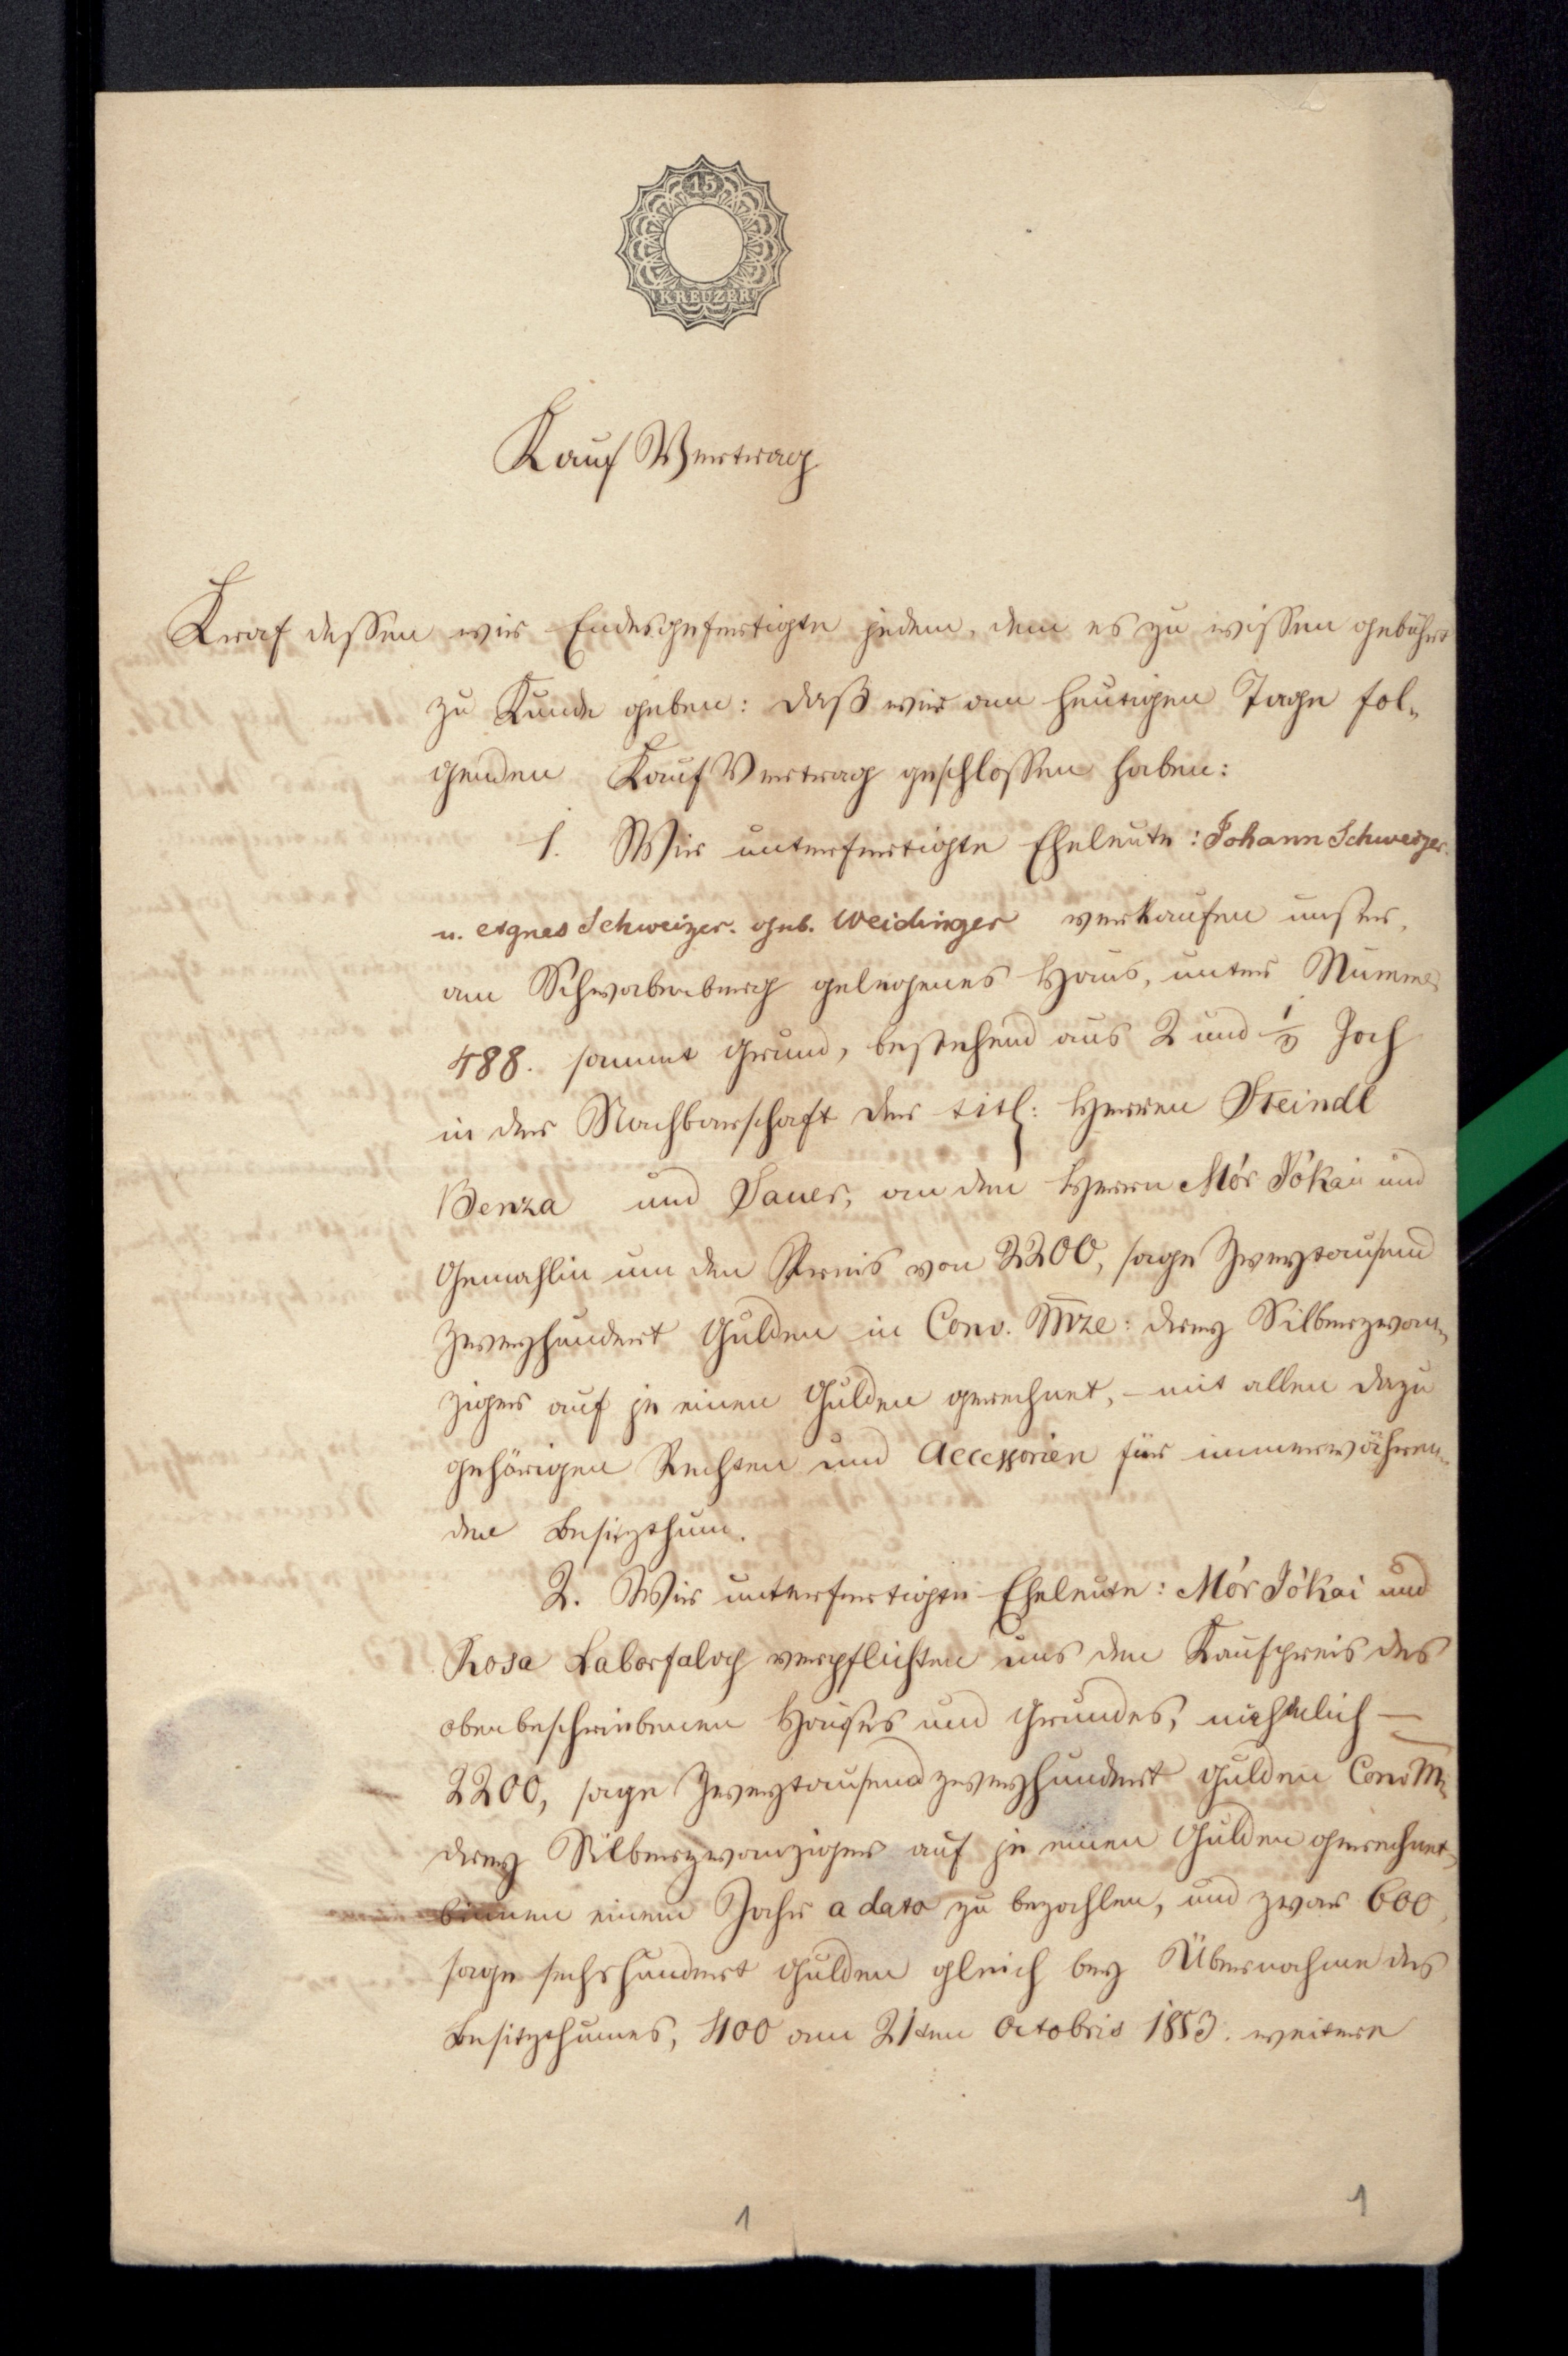 15
KREUZER
Kauf Vertrag
Kraf dessen wir Endesgefertigte jedem, dem es zu wissen gebührt
zu Kunde geben: daß wir am heutigen Tage fol-
genden Kauf Vertrag geschlossen haben:
1. Wir unterfertigte Eheleute: Johann Schweizer.
u. Agnes Schweizer. geb. Weidinger verkaufen unser,
am Schwabenberg gelegenes Haus, unter Nummer
488. sammt Grund, bestehend aus 2 und Joch
in der Nachbarschaft der titl: Herren Steindl
Benza und Sauer, an den Herrn Mór Jókai und
Gemahlin um den Preis von 2200, sage Zweytausend
zweyhundert Gulden in Conv. Mze: drey Silberzwan-
ziger auf je einen Gulden gerechnet, – mit allen dazu
gehörigen Rechten und Accessorien für immerwähren-
den Besitzthum.
2. Wir unterfertigte Eheleute: Mór Jókai und
Rosa Laborfalvy verpflichten uns den Kaufpreis des
obenbeschriebenen Hauses und Grundes, nähmlich —
2200, sage Zweytausend zweyhundert Gulden Conv M.
drey Silberzwanziger auf je einen Gulden gerechnet,
binnen einem Jahr a dato zu bezahlen, und zwar 600,
sage sechshundert Gulden gleich bey Übernahme des
Besitzthumes, 400 am 21ten Octobris 1853. weitere
1
1